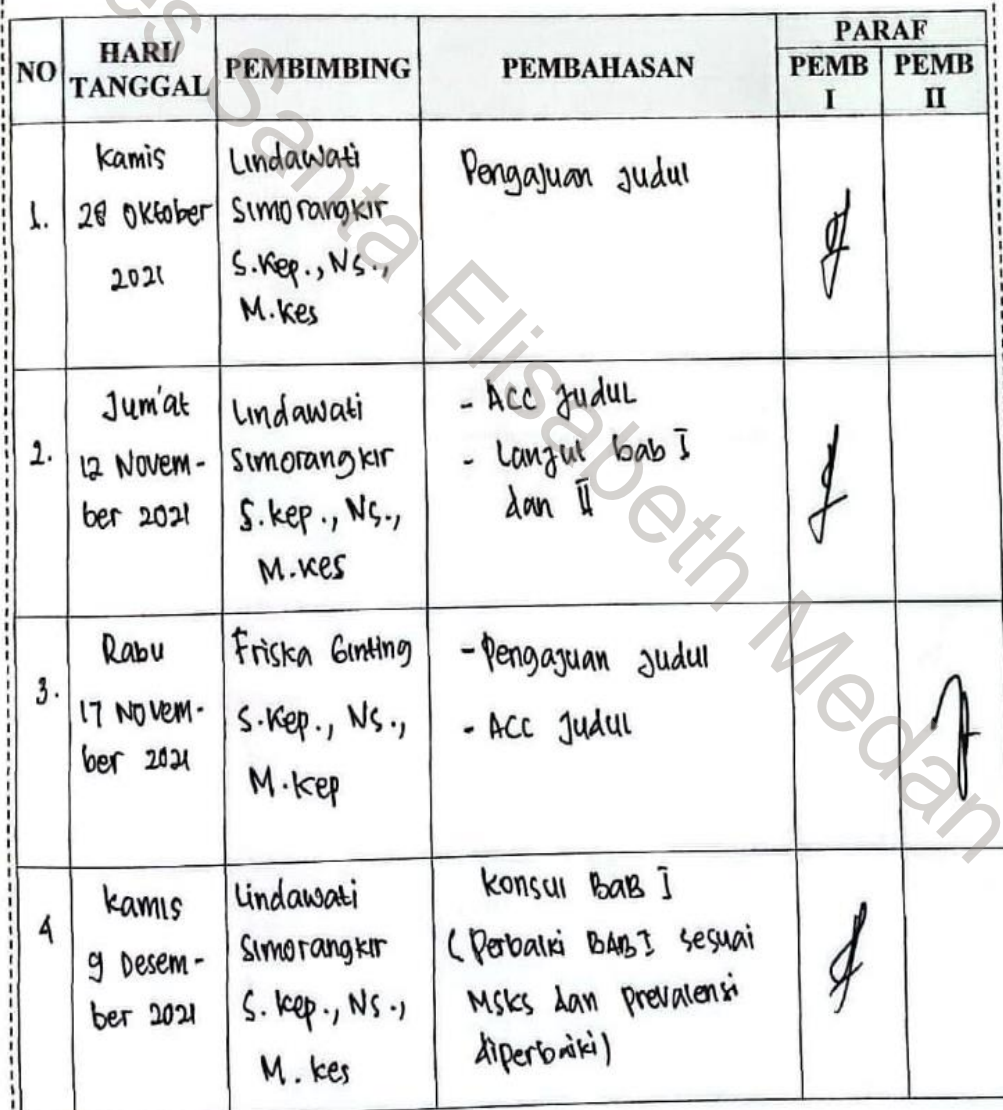 NO
HARI/
TANGGAL
PEMBIMBING
PEMBAHASAN
PARAF
PEMB
I
PEMB
II
1.
Kamis
28 Oktober
2021
Lindawati
Simorangkir
S.Kep., Ns.,
M.Kes
Pengajuan Judul
2.
Jum'at
12 Novem-
ber 2021
Lindawati
Simorangkir
S.kep., Ns.,
M.kes
- ACC Judul
- Lanjut bab I
dan II
3.
Rabu
17 Novem-
ber 2021
Friska Ginting
S.Kep., Ns.,
M.Kep
- Pengajuan Judul
- ACC Judul
4
kamis
9 Desem-
ber 2021
Lindawati
Simorangkir
S. kep., Ns.,
M. kes
Konsul BAB I
(Perbaiki BAB I sesuai
MSKS dan prevalensi
diperbaiki)
Santa Elisabeth Medan